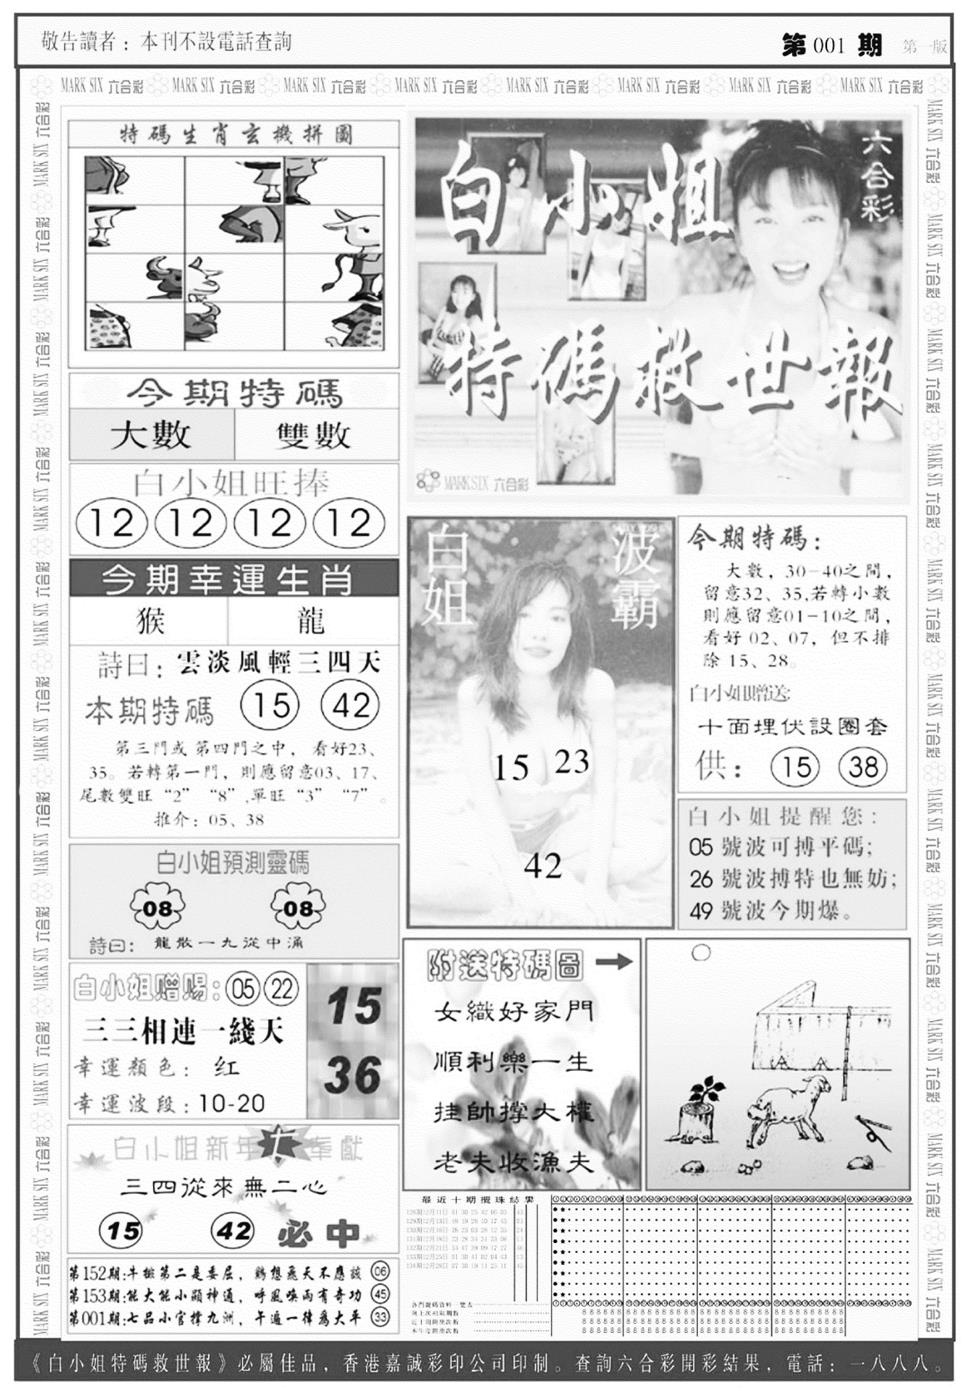 敬告讀者：本刊不設電話查詢
第 001 期 第一版
MARK SIX 六合彩 MARK SIX 六合彩 MARK SIX 六合彩 MARK SIX 六合彩 MARK SIX 六合彩 MARK SIX 六合彩 MARK SIX 六合彩 MARK SIX 六合彩
特碼生肖玄機拼圖
今期特碼
大數 雙數
白小姐旺捧
12 12 12 12
今期幸運生肖
猴 龍
詩曰：雲淡風輕三四天
本期特碼 15 42
第三門或第四門之中，看好23、
35。若轉第一門，則應留意03、17、
尾數雙旺“2”“8”,單旺“3”“7”。
推介：05、38
白小姐預測靈碼
08 08
詩曰：龍散一九從中涌
白小姐贈賜：05 22
三三相連一綫天
幸運顏色：红
幸運波段：10-20
15
36
白小姐新年奉獻
三四從來無二心
15 42 必中
第152期:牛排第二是委屈，鷄想飛天不應該 06
第153期:能大能小顯神通，呼風喚雨有奇功 45
第001期:七品小官撐九洲，午遍一律爲大平 33
六合彩
白小姐
特碼救世報
MARK SIX 六合彩
白姐 波霸
15 23
42
今期特碼：
大數，30-40之間，
留意32、35,若轉小數
則應留意01-10之間，
看好 02、07，但不排
除 15、28。
白小姐贈送:
十面埋伏設圈套
供：15 38
白小姐提醒您：
05 號波可搏平碼;
26 號波搏特也無妨;
49 號波今期爆。
附送特碼圖
女織好家門
順利樂一生
挂帥撐大權
老夫收漁夫
最近十期攪珠結果
《白小姐特碼救世報》必屬佳品，香港嘉誠彩印公司印制。查詢六合彩開彩結果，電話：一八八八。